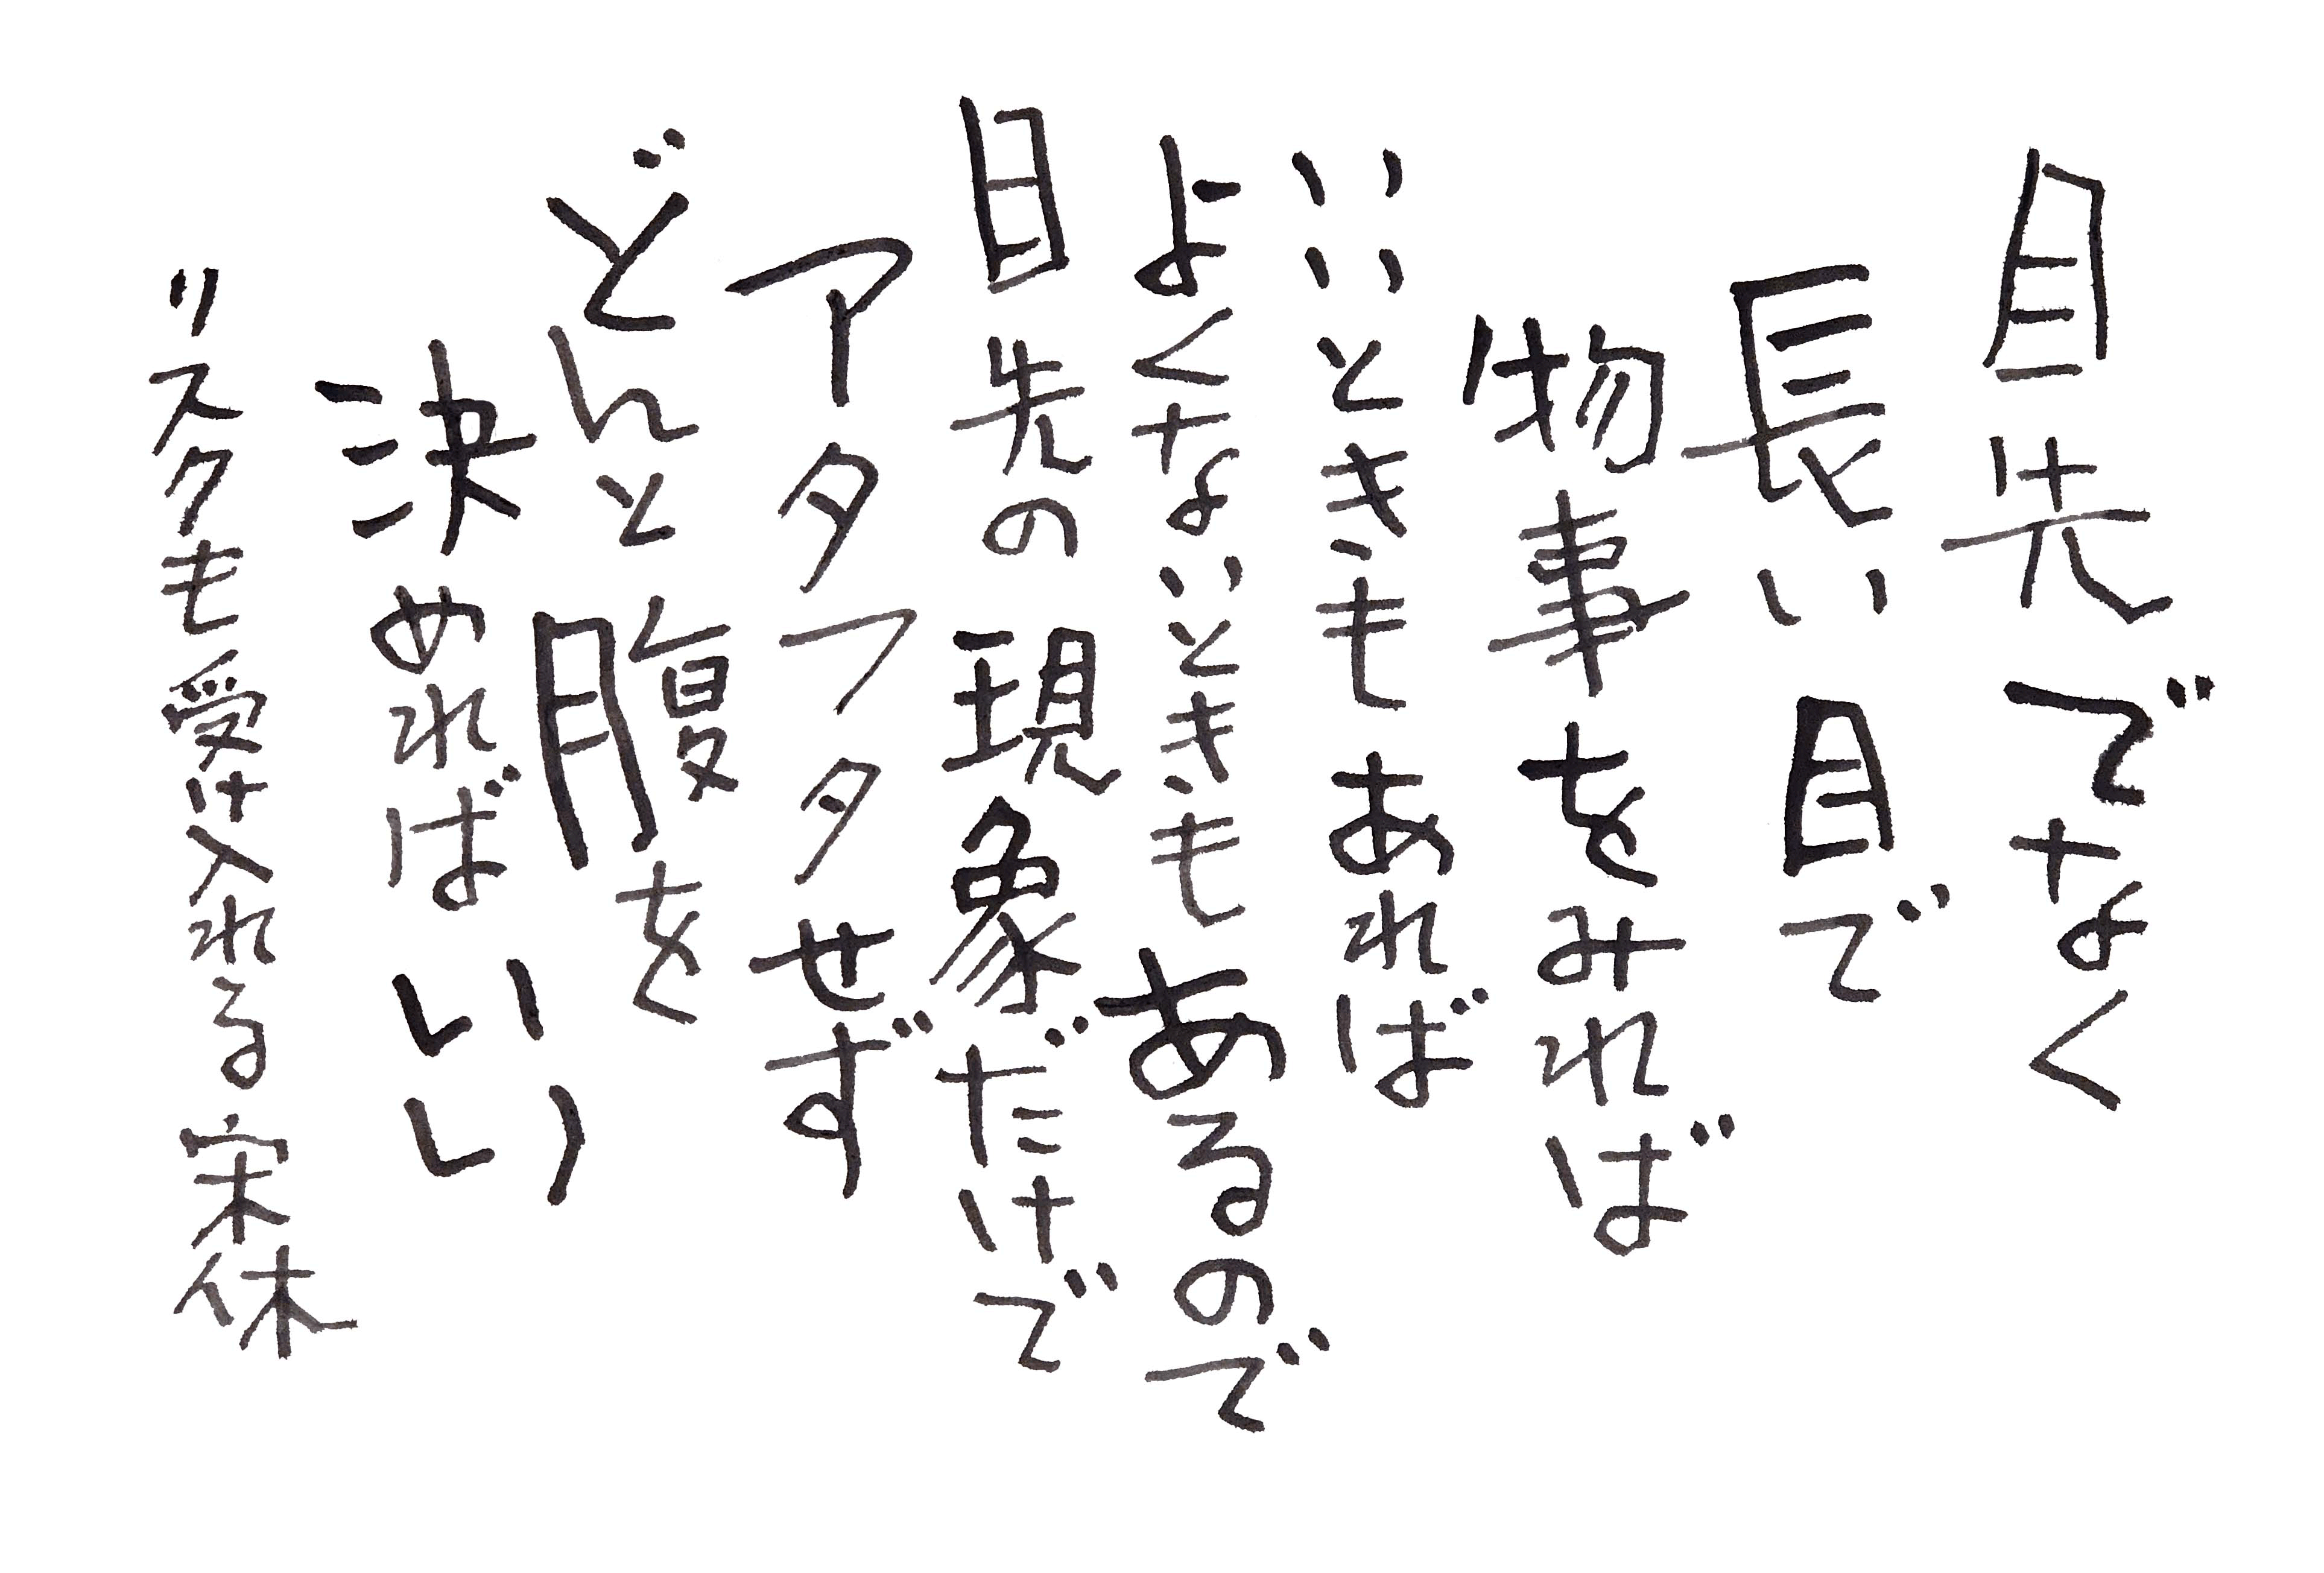 目先でなく
長い目で
物事をみれば
いいときもあれば
よくないときもあるので
目先の現象だけで
アタフタせず
どんと腹を
決めればいい
リスクも受け入れる宋休